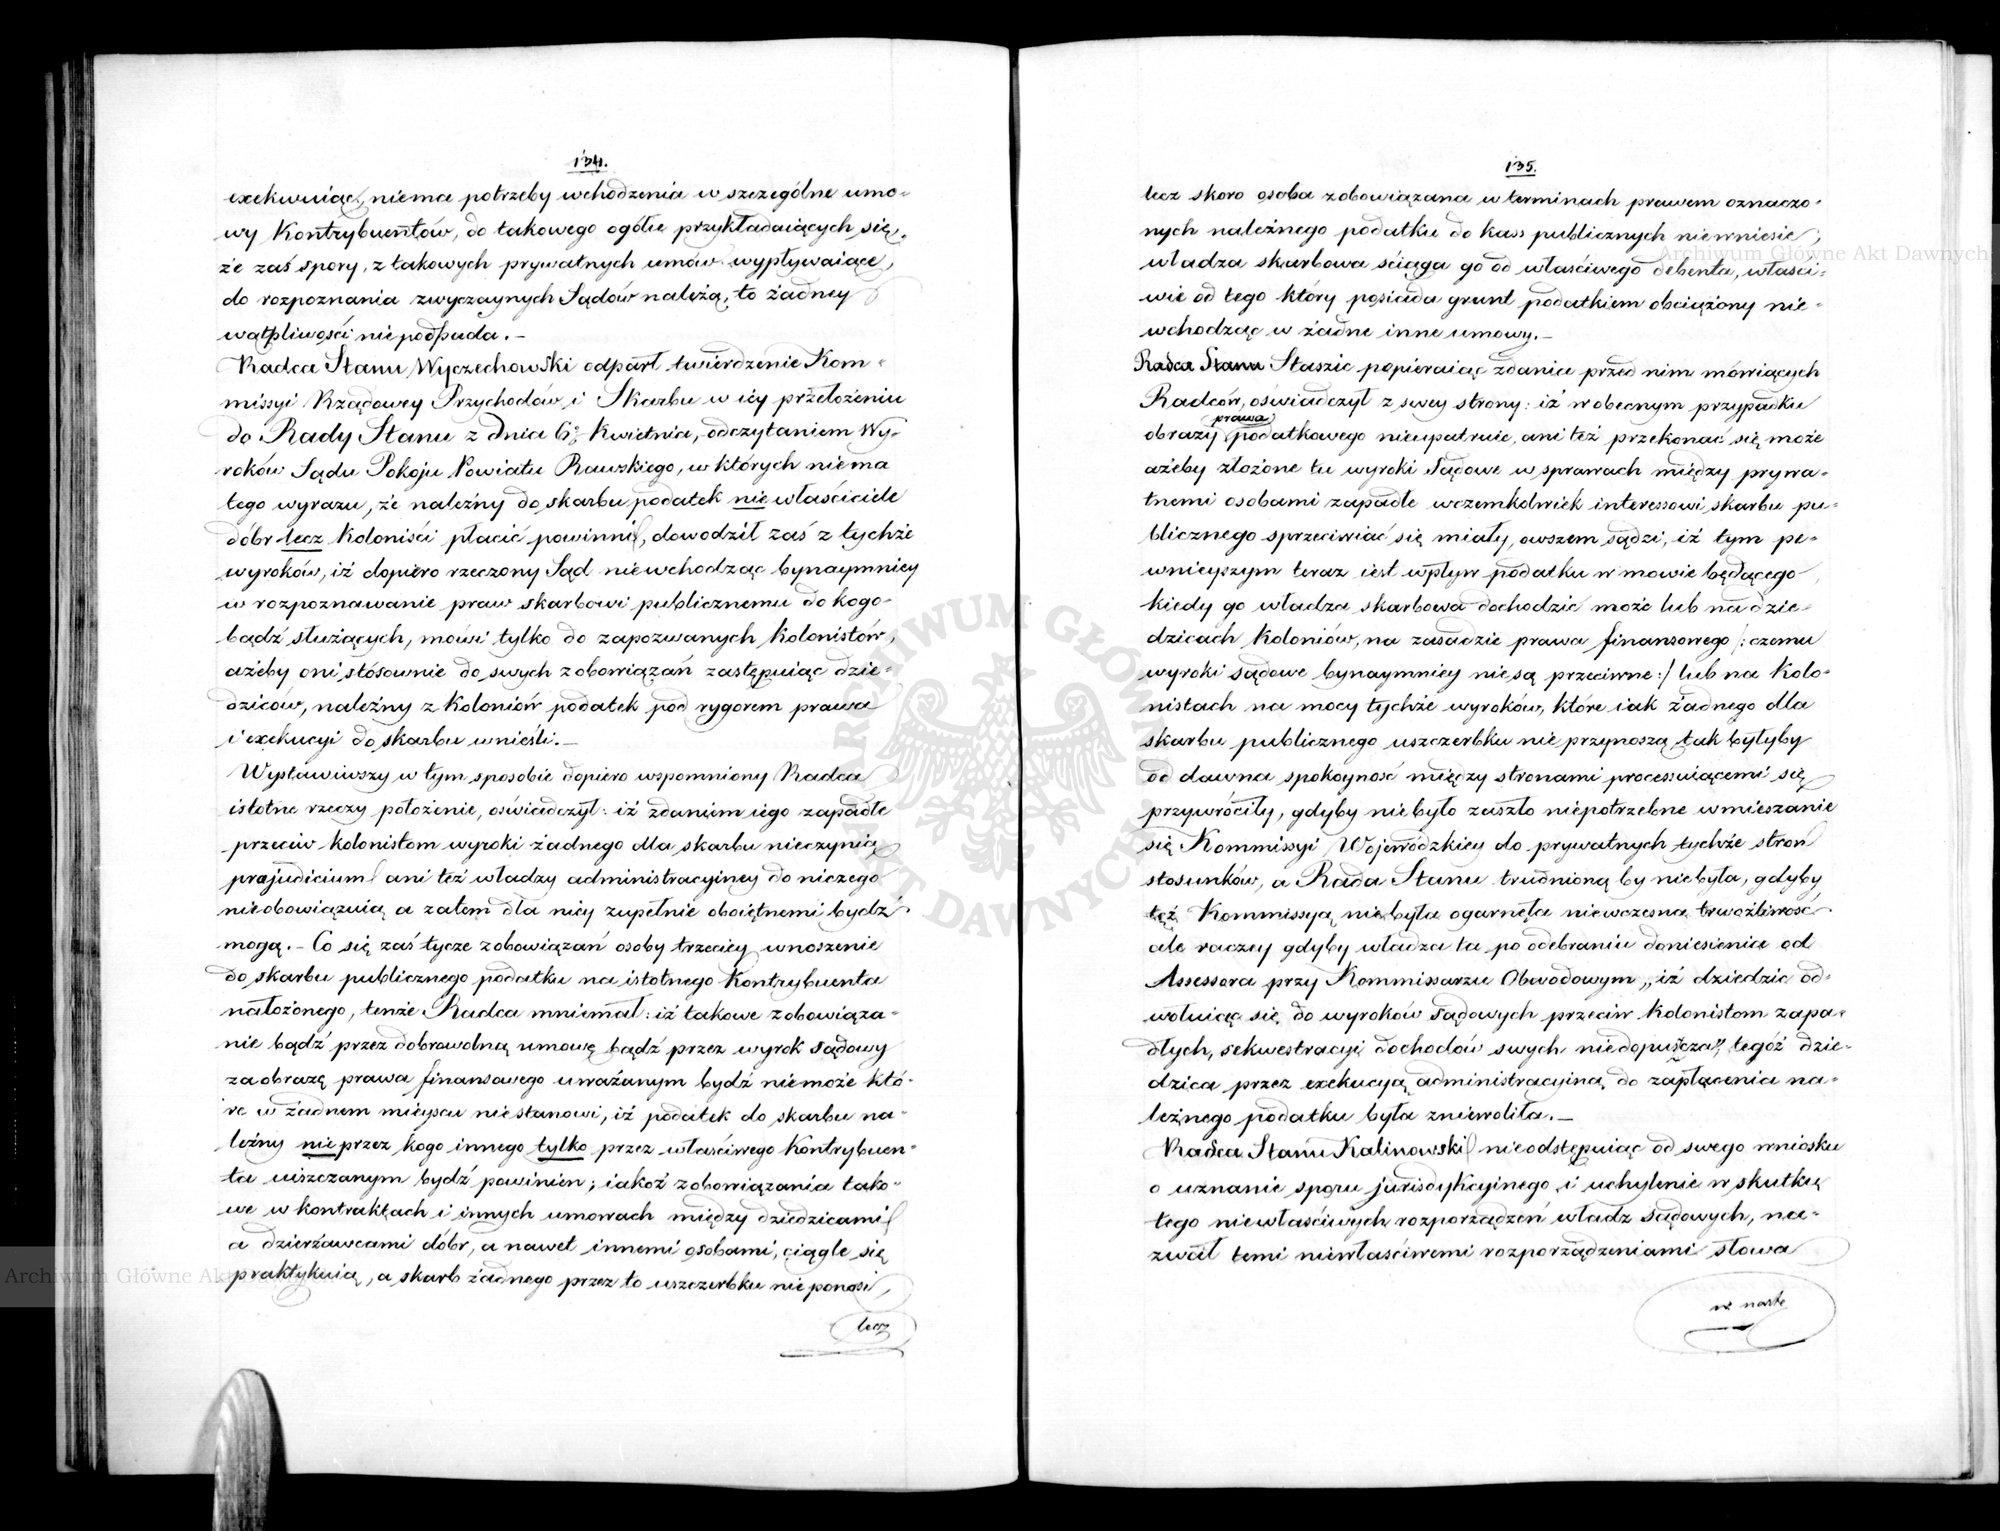 134.
exekwuiąc, niema potrzeby wchodzenia w szczególne umo-
wy Kontrybuentów, do takowego ogółu przykładaiących się,
że zaś spory, z takowych prywatnych umów wypływaiące,
do rozpoznania zwyczaynych Sądów należą, to żadney
wątpliwości niepodpada. –
Radca Stanu Wyczechowski odparł twierdzenie Kom-
missyi Rządowey Przychodów i Skarbu w iéy przełożeniu
do Rady Stanu z dnia 6go Kwietnia, odczytaniem Wy-
roków Sądu Pokoju Powiatu Rawskiego, w których niema
tego wyrazu, że należny do skarbu podatek nie właściciele
dóbr lecz Koloniści płacić powinni, dowodził zaś z tychże
wyroków, iż dopiero rzeczony Sąd niewchodząc bynaymniey
w rozpoznawanie praw skarbowi publicznemu do kogo-
bądź służących, mówi tylko do zapozwanych Kolonistów,
ażeby oni stósownie do swych zobowiązań zastępuiąc dzie-
dziców, należny z Koloniów podatek pod rygorem prawa
i exekucyi do skarbu wnieśli. –
Wystawiwszy w tym sposobie dopiero wspomniony Radca
istotne rzeczy położenie, oświadczył: iż zdaniem iego zapadłe
przeciw kolonistom wyroki żadnego dla skarbu nieczynią
prejudicium ani też władzy administracyiney do niczego
nieobowiązuią a zatem dla niey zupełnie oboiętnemi bydź
mogą. – Co się zaś tycze zobowiązań osoby trzeciey wnoszenie
do skarbu publicznego podatku na istotnego Kontrybuenta
nałożonego, tenże Radca mniemał: iż takowe zobowiąza-
nie bądź przez dobrowolną umowę bądź przez wyrok sądowy
za obrazę prawa finansowego uważanym bydź niemoże któ-
re w żadnem mieyscu niestanowi, iż podatek do skarbu na-
leżny nie przez kogo innego tylko przez właściwego Kontrybuen-
ta uiszczanym bydź powinien; iakoż zobowiązania tako-
we w kontraktach i innych umowach między dziedzicami
a dzierżawcami dóbr, a nawet innemi osobami, ciągle się
praktykuią, a skarb żadnego przez to uszczerbku nieponosi,
lecz
135.
lecz skoro osoba zobowiązana w terminach prawem oznaczo-
nych należnego podatku do kass publicznych niewniesie,
władza skarbowa ściąga go od właściwego debenta, właści-
wie od tego który posiada grunt podatkiem obciążony nie-
wchodząc w żadne inne umowy. –
Radca Stanu Staszic popieraiąc zdania przed nim mówiących
Radców, oświadczył z swey strony: iż w obecnym przypadku
prawa
obrazy podatkowego nieupatruie, ani też przekonać się może
ażeby złożone tu wyroki Sądowe w sprawach między prywa-
tnemi osobami zapadłe wczemkolwiek interessowi skarbu pu-
blicznego sprzeciwiać się miały, owszem sądzi, iż tym pe-
wnieyszym teraz iest wpływ podatku w mowie będącego
kiedy go władza skarbowa dochodzić może lub na dzie-
dzicach Koloniów, na zasadzie prawa finansowego /: czemu
wyroki sądowe bynaymniey nie są przeciwne :/ lub na Kolo-
nistach na mocy tychże wyroków, które iak żadnego dla
skarbu publicznego uszczerbku nie przynoszą tak byłyby
od dawna spokoyność między stronami processuiącemi się
przywróciły, gdyby niebyło zaszło niepotrzebne wmieszanie
się Kommissyi Wojewódzkiey do prywatnych tychże stron
stosunków, a Rada Stanu trudnioną by niebyła, gdyby
też Kommissyą niebyła ogarnęła niewczesna trwożliwość
ale raczey gdyby władza ta po odebraniu doniesienia od
Assessora przy Kommissarzu Obwodowym „iż dziedzic od-
wołuiąc się do wyroków sądowych przeciw Kolonistom zapa-
dłych, sekwestracyi dochodów swych niedopuszcza” tegóż dzie-
dzica przez exekucyą administracyiną do zapłacenia na-
leżnego podatku była zniewoliła. –
Radca Stanu Kalinowski nieodstępuiąc od swego wniosku
o uznanie sporu jurisdykcyinego i uchylenie w skutku
tego niewłaściwych rozporządzeń władz sądowych, na-
zwał temi niewłaściwemi rozporządzeniami słowa
w nastę
Archiwum Główne Akt Dawnych
Archiwum Główne Akt Dawnych
ARCHIWUM GŁÓWNE AKT DAWNYCH